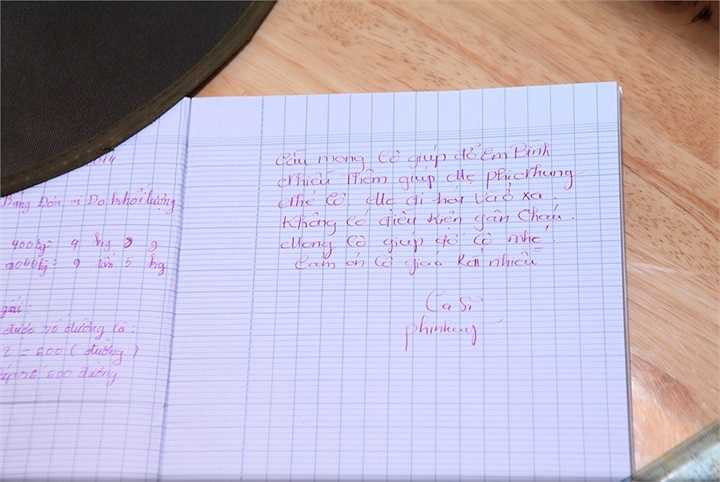 14
Bảng Đơn vị Đo khối lượng
900kg= 9 kg 3 g
kg= 9 tấn 5 kg
giải:
được số đường là:
2 = 600 ( đường )
600 đường
Cầu mong Cô giúp đỡ Em Bình
Nhiều Thêm giúp Mẹ Phi Nhung
Nhé Cô Mẹ đi hát Và ở xa
Không Có điều kiện gần Cháu.
Mong Cô giúp đỡ Cô nhé!
Cảm ơn Cô giáo Rất nhiều
Ca Sĩ
phinhung